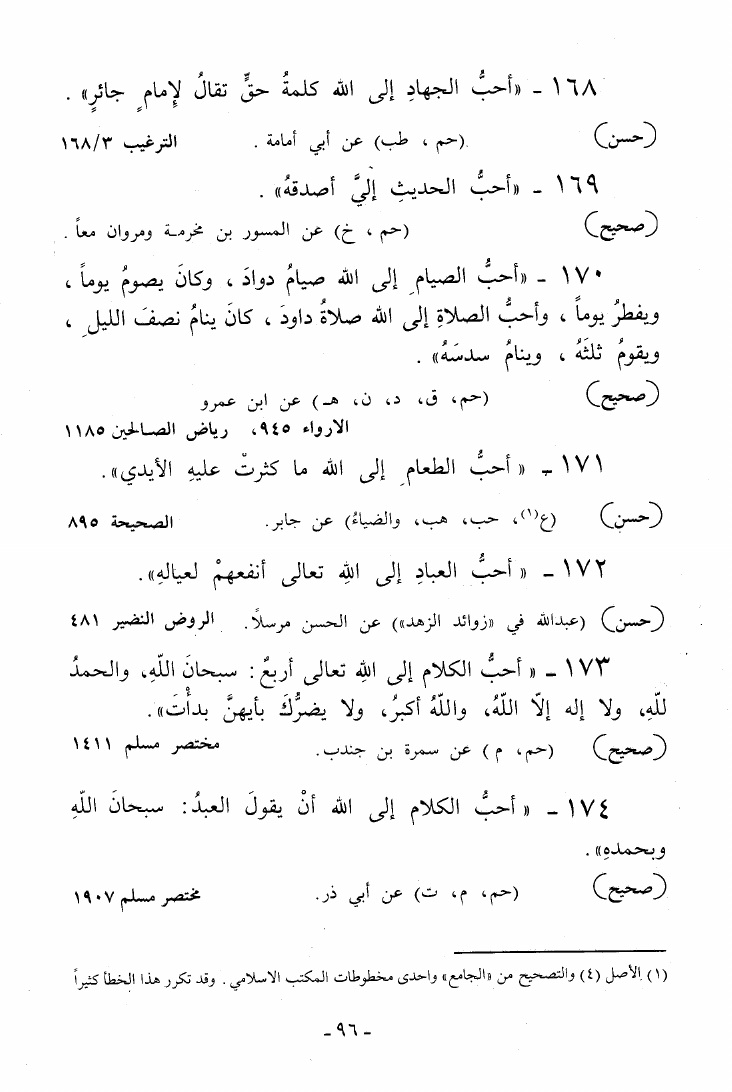 ١٦٨ - «أحبُّ الجهادِ إلى الله كلمةُ حقٍّ تقالُ لإمامٍ جائرٍ» .
(حسن) (حم ، طب) عن أبي أمامة . الترغيب ١٦٨/٣
١٦٩ - «أحبُّ الحديثِ إليَّ أصدقهُ» .
(صحيح) (حم ، خ) عن المسور بن مخرمة ومروان معاً .
١٧٠ - «أحبُّ الصيامِ إلى الله صيامُ دوادَ ، وكانَ يصومُ يوماً ،
ويفطرُ يوماً ، وأحبُّ الصلاةِ إلى الله صلاةُ داودَ ، كانَ ينامُ نصفَ الليلِ ،
ويقومُ ثلثَهُ ، وينامُ سدسَهُ» .
(صحيح) (حم، ق، د، ن، هـ) عن ابن عمرو
الارواء ٩٤٥، رياض الصالحين ١١٨٥
١٧١ - « أحبُّ الطعامِ إلى الله ما كثرتْ عليهِ الأيدي».
(حسن) (ع(١)، حب، هب، والضياءُ) عن جابر. الصحيحة ٨٩٥
١٧٢ - « أحبُّ العبادِ إلى اللهِ تعالى أنفعهمْ لعيالهِ».
(حسن) (عبدالله في «زوائد الزهد») عن الحسن مرسلاً. الروض النضير ٤٨١
١٧٣ - « أحبُّ الكلامِ إلى اللهِ تعالى أربعٌ: سبحانَ اللّهِ، والحمدُ
للّهِ، ولا إله إلّا اللّهُ، واللّهُ أكبرُ، ولا يضرُّكَ بأيهنَّ بدأْتَ».
(صحيح) (حم، م) عن سمرة بن جندب. مختصر مسلم ١٤١١
١٧٤ - « أحبُّ الكلامِ إلى الله أنْ يقولَ العبدُ: سبحانَ اللّهِ
وبحمدهِ» .
(صحيح) (حم، م، ت) عن أبي ذر. مختصر مسلم ١٩٠٧
(١) الأصل (٤) والتصحيح من «الجامع» واحدى مخطوطات المكتب الاسلامي . وقد تكرر هذا الخطأ كثيراً
- ٩٦ -